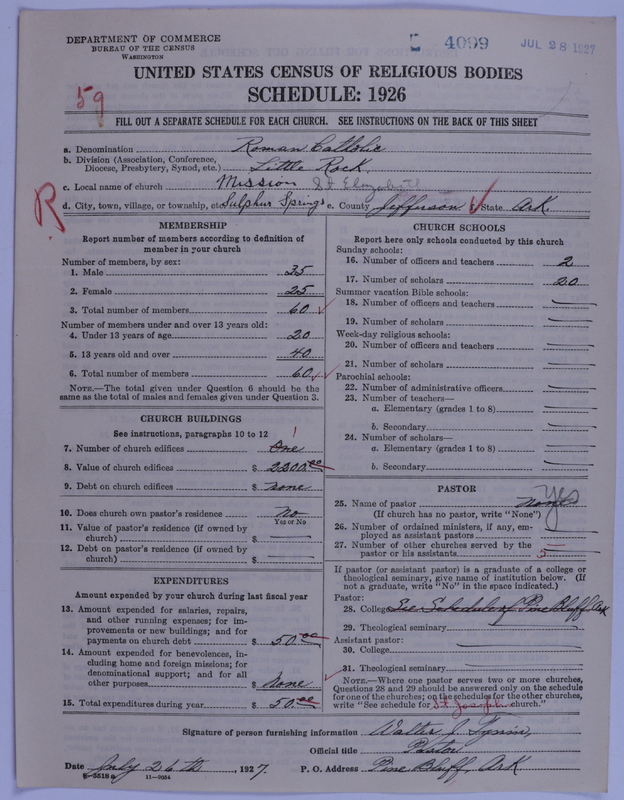 DEPARTMENT OF COMMERCE
BUREAU OF THE CENSUS
WASHINGTON
4099
JUL 28 1927
UNITED STATES CENSUS OF RELIGIOUS BODIES
SCHEDULE: 1926
59
FILL OUT A SEPARATE SCHEDULE FOR EACH CHURCH. SEE INSTRUCTIONS ON THE BACK OF THIS SHEET
a. Denomination Roman Catholic
b. Division (Association, Conference,
Diocese, Presbytery, Synod, etc.) Little Rock
c. Local name of church Mission St Elizabeth
d. City, town, village, or township, etc. Sulphur Springs e. County Jefferson f. State Ark.
R
MEMBERSHIP
Report number of members according to definition of
member in your church
Number of members, by sex:
1. Male 35
2. Female 25
3. Total number of members 60
Number of members under and over 13 years old:
4. Under 13 years of age 20
5. 13 years old and over 40
6. Total number of members 60
NOTE.—The total given under Question 6 should be the
same as the total of males and females given under Question 3.
CHURCH BUILDINGS
See instructions, paragraphs 10 to 12
7. Number of church edifices One 1
8. Value of church edifices $ 2200.00
9. Debt on church edifices $ none
10. Does church own pastor's residence? No
Yes or No
11. Value of pastor's residence (if owned by
church) $
12. Debt on pastor's residence (if owned by
church) $
EXPENDITURES
Amount expended by your church during last fiscal year
13. Amount expended for salaries, repairs,
and other running expenses; for im-
provements or new buildings; and for
payments on church debt $ 50.00
14. Amount expended for benevolences, in-
cluding home and foreign missions; for
denominational support; and for all
other purposes $ None
15. Total expenditures during year $ 50.00
CHURCH SCHOOLS
Report here only schools conducted by this church
Sunday schools:
16. Number of officers and teachers 2
17. Number of scholars 20
Summer vacation Bible schools:
18. Number of officers and teachers
19. Number of scholars
Week-day religious schools:
20. Number of officers and teachers
21. Number of scholars
Parochial schools:
22. Number of administrative officers
23. Number of teachers—
a. Elementary (grades 1 to 8)
b. Secondary
24. Number of scholars—
a. Elementary (grades 1 to 8)
b. Secondary
PASTOR
25. Name of pastor None yes
(If church has no pastor, write "None")
26. Number of ordained ministers, if any, em-
ployed as assistant pastors
27. Number of other churches served by the
pastor or his assistants 5
If pastor (or assistant pastor) is a graduate of a college or
theological seminary, give name of institution below. (If
not a graduate, write "No" in the space indicated.)
Pastor:
28. College See Schedule of Pine Bluff, Ark
29. Theological seminary
Assistant pastor:
30. College
31. Theological seminary
NOTE.—Where one pastor serves two or more churches,
Questions 28 and 29 should be answered only on the schedule
for one of the churches; on the schedules for the other churches,
write "See schedule for St Joseph church."
Signature of person furnishing information Walter J. Tynin,
Official title Pastor
Date July 26th, 1927. P. O. Address Pine Bluff, Ark
8-5518a 11-9054